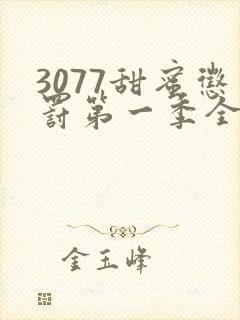 3077甜蜜惩
罚第一季全
金玉峰